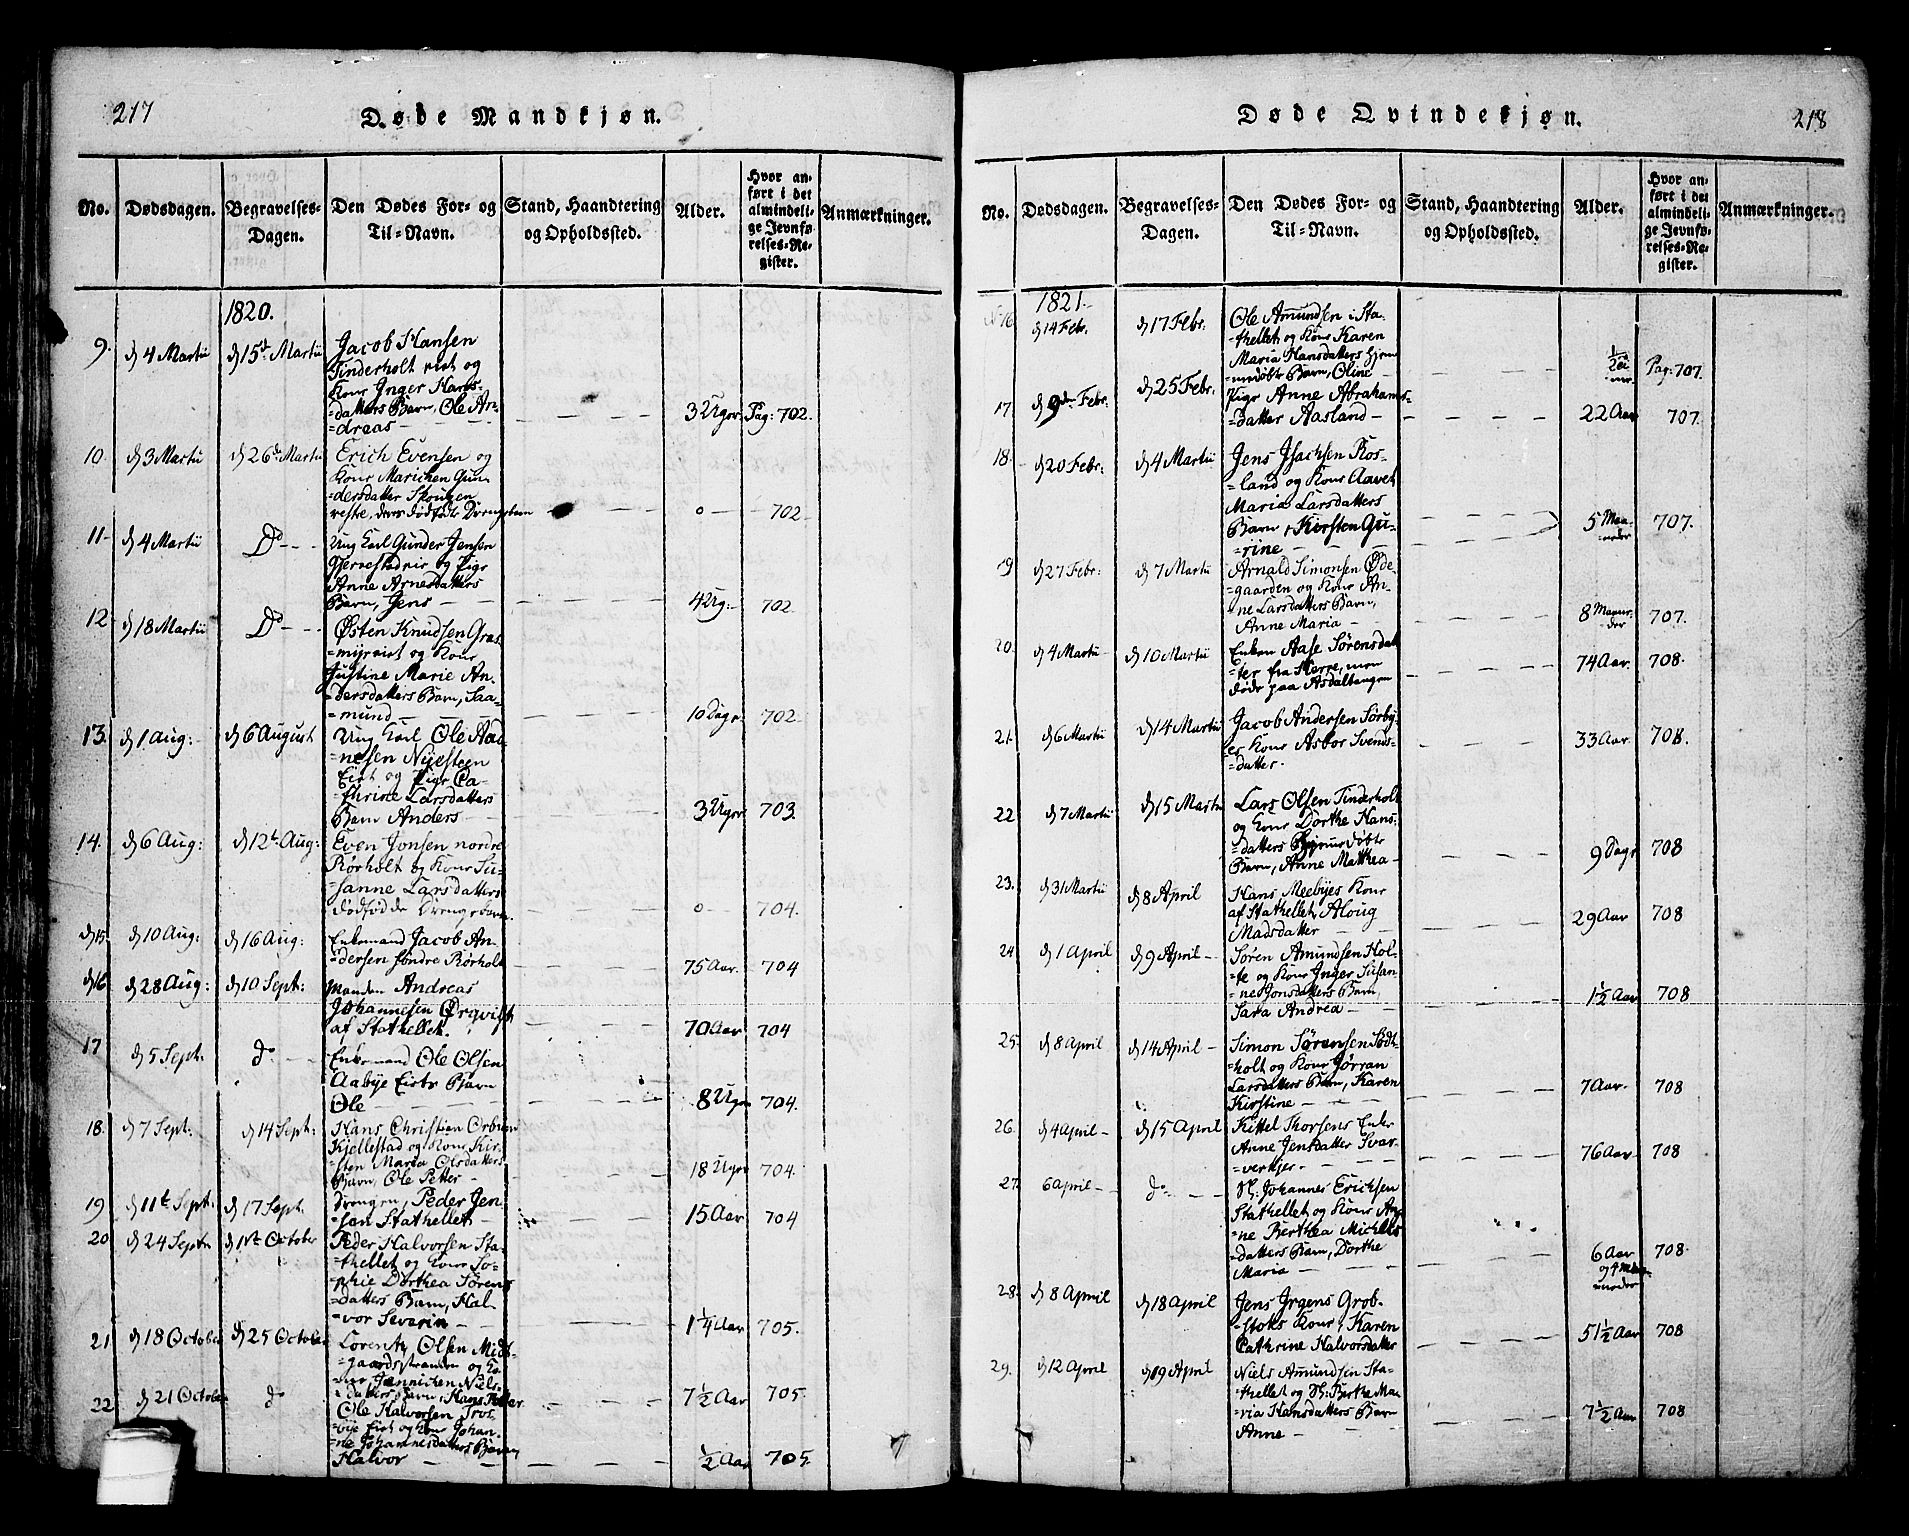 217
Døde Mandkjøn.
No.
Dødsdagen.
Begravelses-
Dagen.
Den Dødes For- og
Til-Navn.
Stand, Haandtering
og Opholdssted.
Alder.
Hvor an-
ført i det
almindeli-
ge Jevnfø-
relses-Re-
gister.
Anmærkninger.
1820.
9. d 4 Martii d 15d Martii Jacob Hansen
Tinderholt og
Kone Inger Hans-
=datters Barn, Ole An-
=dreas 3 Uger Pag: 702.
10. d 3 Martii d 26d Martii Erich Evensen og
Kone Marichen Gun
=dersdatter
deres dødfødte Drengebarn o 702
11. d 4 Martii Do Ung Karl Gunder Jensen
og Pige
Anne Arnesdatters
Barn, Jens 4 Ug: 702
12. d 18 Martii Do Østen Knudsen Gras
=myr og Kone
Justine Marie An-
=dersdatters Barn, Saa-
=mund 10 Dage 702.
13. d 1 Aug: d 6 August Ung Karl Ole Aad-
=nesen Nyesteen
Eiet og Pige Ca-
=thrine Larsdatters
Barn Anders 3 Uger 703.
14. d 6 Aug: d 12te Aug: Even Jonsen nordre
Rørholt og Kone Su-
=sanne Larsdatters
dødfødde Drengebarn o 704.
d 15. d 10 Aug: d 16 Aug: Enkemand Jacob An-
=dersen søndre Rørholt 75 Aar. 704
d 16 d 28 Aug: d 10 Sept: Manden Andreas
Johannesen Ørqvist
af Stathellet. 70 Aar 704
17 d 5 Sept. do Enkemand Ole Olsen
Aabye Eiets Barn
Ole 8 Uger 704.
18. d 7 Sept: d 14 Sept: Hans Christian
Kjellestad og Kone Kir-
=sten Maria Olsdatters
Barn, Ole Petter 18 Uger 704.
19 d 11te Sept: d 17 Sept. Drengen, Peder Jen
=sen Stathellet 15 Aar 704
20 d 24 Septr d 1ste October Peder Halvorsen Sta-
=thellet og Kone So-
=phie Dorthea Sørens
=datters Barn, Hal
=vor Severin 1 1/4 Aar 705.
21 d 18 October d 25 October Lorentz Olsen Midt-
=gaardsstranden og Ko-
=ne Jennichen Niels-
=datters Barn, Hans Petter 7 1/2 Aar 705.
22 d 21 October do Ole Halvorsen Tros
=vije Eiet og Kone Johan-
=ne Johannesdatters Barn
Halvor 1/2 Aar 705.
218
Døde Qvindekjøn.
No.
Dødsdagen.
Begravelses-
Dagen.
Den Dødes For- og
Til-Navn.
Stand, Haandtering
og Opholdssted.
Alder.
Hvor an-
ført i det
almindeli-
ge Jevnfø-
relses-Re-
gister.
Anmærkninger.
1821.
16. d 14 Febr. d 17 Febr: Ole Amundsen i Sta-
=thellet og Kone Karen
Maria Hansdatters hjem
=medøbte Barn, Oline Pag: 707.
17. d 9de Febr: d 25 Febr. Pige Anne Abrahams-
=datter Aasland 22 Aar 707.
18. d 20 Febr: d 4 Martii Jens Isachsen Ros-
=land og Kone Aavet
Maria Larsdatters
Barn, Kirsten Gu-
=rine 5 Maa-
=neder 707.
19 d 27 Febr: d 7 Martii Arnald Simonsen Øde-
=gaarden og Kone An-
=ne Larsdatters Barn,
Anne Maria 8 Maane-
=der 707.
20. d 4 Martii d 10 Martii Enken Aase Sørensdat
=ter fra Herre, men
døde paa Asdaltangen 74 Aar. 708.
21. d 6 Martii d 14 Martii Jacob Andersen Sørby-
=es Kone Asbor Svends-
=datter. 33 Aar 708.
22 d 7 Martii d 15 Martii Lars Olsen Tinderholt
og Kone Dorthe Hans-
=datters hjemmedøbte
Barn, Anne Matthea 9 Dage 708
23. d 31 Martii d 8 April Hans Meebyes Kone
af Stathellet, Aloug
Madsdatter 29 Aar 708
24 d 1 April d 9 April Søren Amundsen Hol-
=te og Kone Inger Susan-
=ne Jonsdatters Barn,
Sara Andrea 1 1/2 Aar 708
25. d 8 April d 14 April Simon Sørensen Sødt-
=holt og Kone Jørran
Larsdatters Barn, Karen
Kirstine 7 Aar. 708
26. d 4 April d 15 April Kittel Thorsens Enke
Anne Jensdatter Svar-
=verkjer. 76 Aar 708
27. 6 April do Sl: Johannes Erichsen
Stathellet og Kone An
=ne Berthea Michels
=datters Barn, Dorthe
Maria 6 Aar
og 4 Maa-
=neder 708.
28. d 8 April d 18 April Jens Jrgens Grob-
=stoks Kone, Karen
Cathrine Halvorsdatter 51 1/2 Aar 708
29. d 12 April d 19 April Niels Amundsen Sta-
=thellet og Sl: Berthe Ma
=ria Hansdatters Barn
Anne 7 1/2 Aar 708